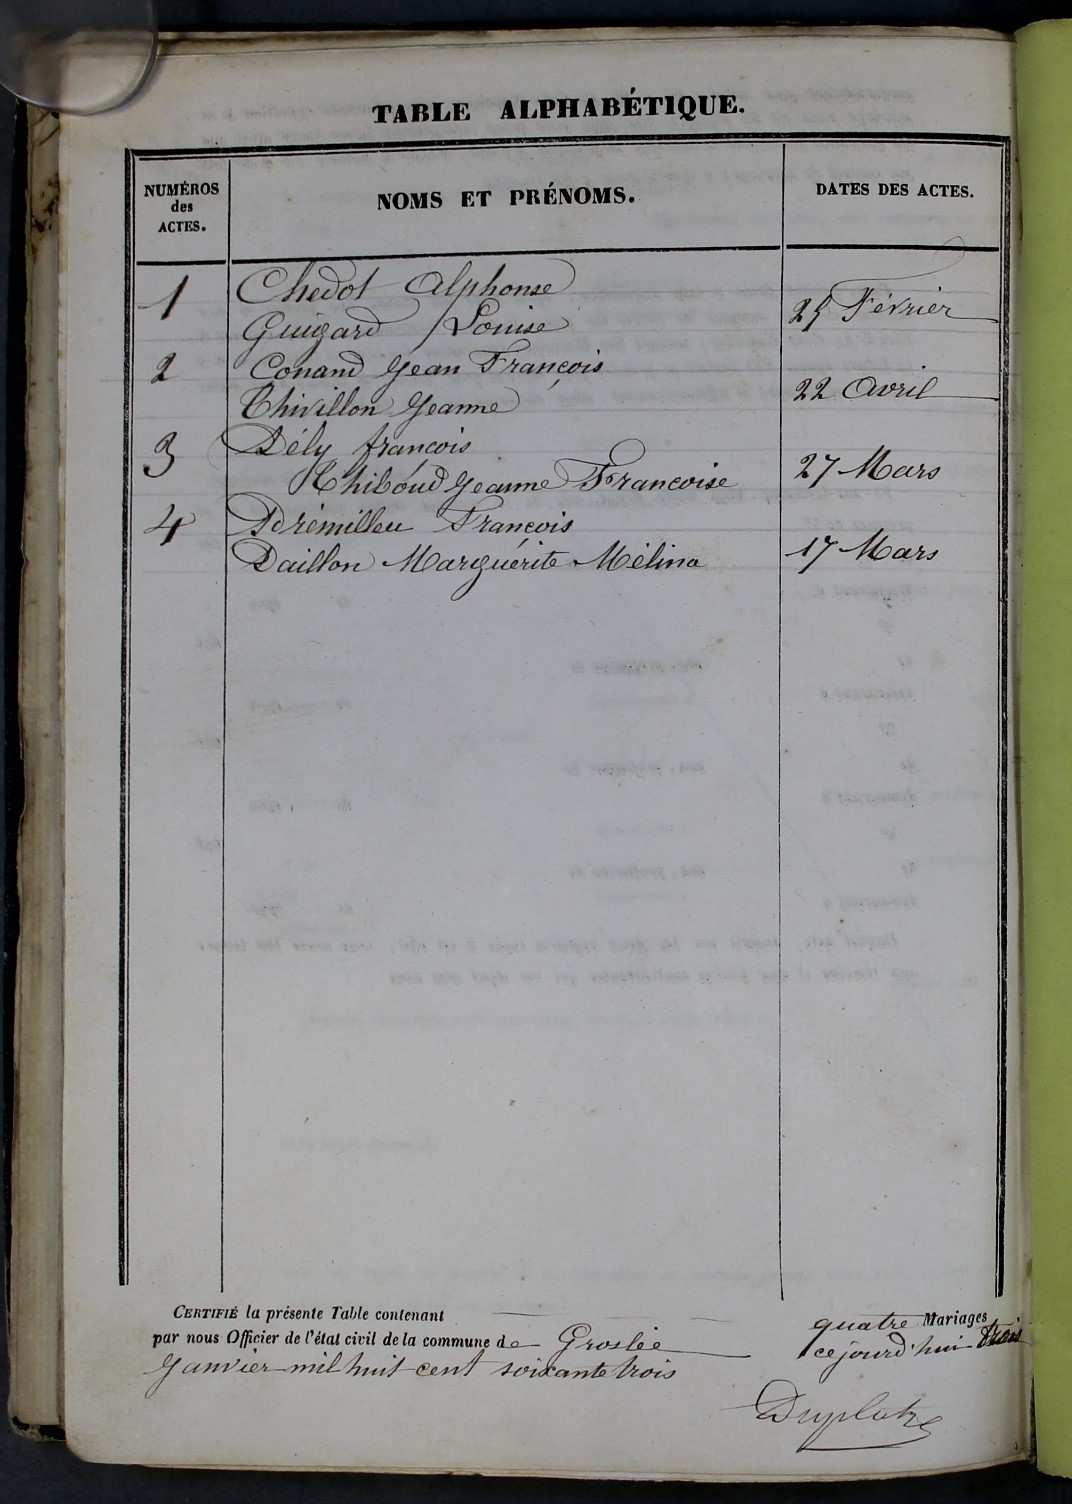 TABLE ALPHABÉTIQUE.
NUMÉROS
des
ACTES.
NOMS ET PRÉNOMS.
DATES DES ACTES.
1 Chedot Alphonse
Guigard Louise 25 Février
2 Conand Jean François
Thivillon Jeanne 22 Avril
3 Dély françois
Thiboud Jeanne Francoise 27 Mars
4 Drémilleu François
Daillon Marguérite Mélina 17 Mars
CERTIFIÉ la présente Table contenant quatre Mariages
par nous Officier de l'état civil de la commune de Groslée cejourd'hui trois
Janvier mil huit cent soixante trois